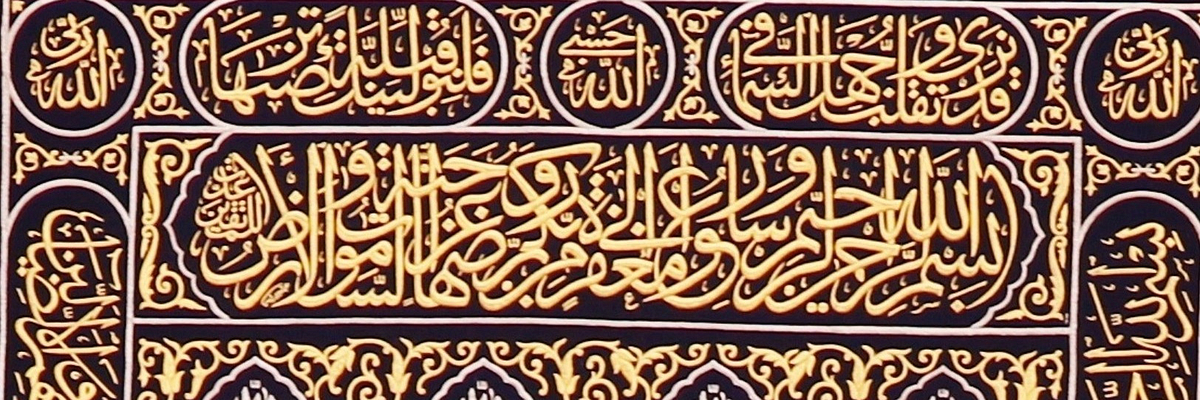 الله ربي
قد نرى تقلب وجهك في السماء
الله حسبي
فلنولينك قبلة ترضها
الله ربي
بسم الله الرحمن الرحيم وسارعوا إلى مغفرة من ربكم وجنة عرضها السموات والأرض أعدت للمتقين
بسم الله